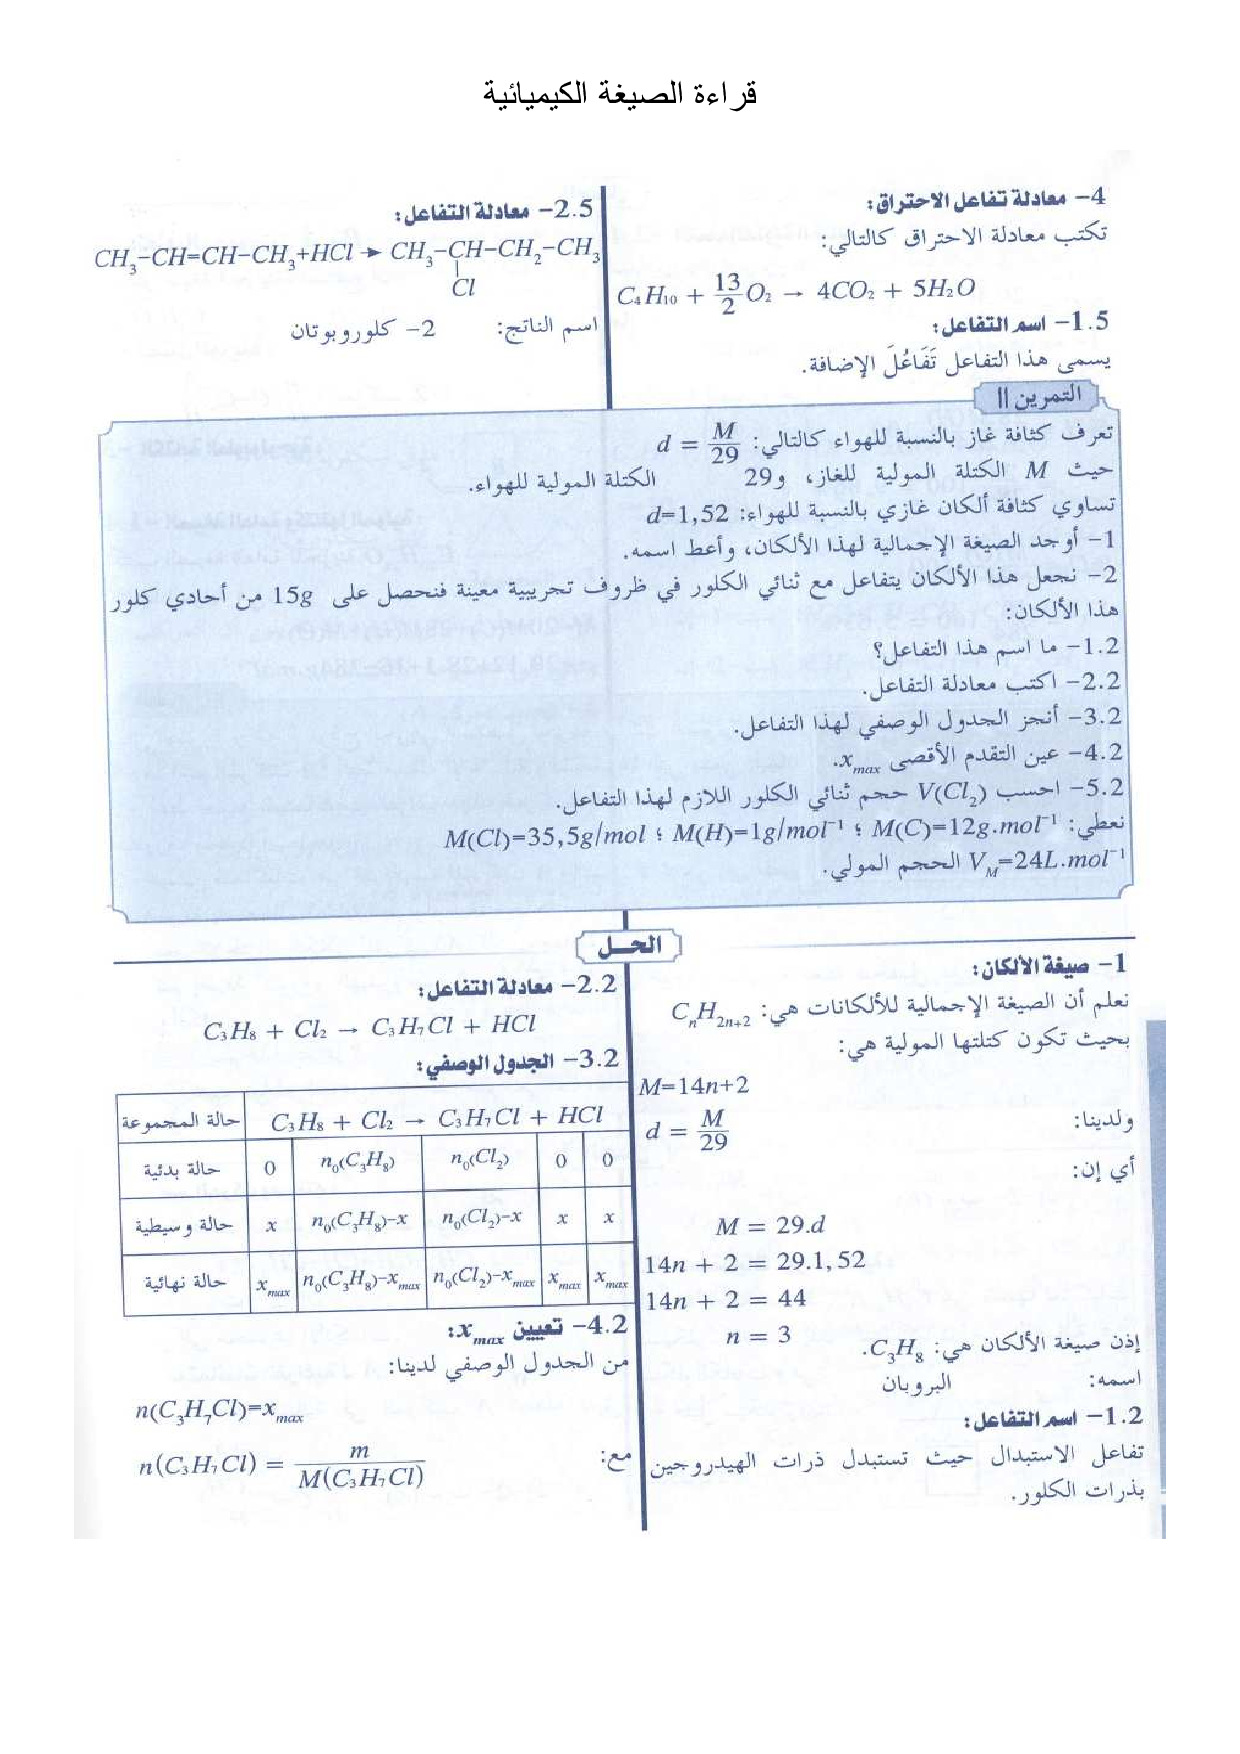 قراءة الصيغة الكيميائية
4- معادلة تفاعل الاحتراق:
تكتب معادلة الاحتراق كالتالي:
C₄H₁₀ + 13/2 O₂ → 4CO₂ + 5H₂O
1.5- اسم التفاعل:
يسمى هذا التفاعل تَفَاعُلَ الإضافة.
2.5- معادلة التفاعل:
CH₃-CH=CH-CH₃+HCl → CH₃-CH-CH₂-CH₃
Cl
اسم الناتج: 2- كلوروبوتان
التمرين II
تعرف كثافة غاز بالنسبة للهواء كالتالي: d = M/29
حيث M الكتلة المولية للغاز، و29 الكتلة المولية للهواء.
تساوي كثافة ألكان غازي بالنسبة للهواء: d=1,52
1- أوجد الصيغة الإجمالية لهذا الألكان، وأعط اسمه.
2- نجعل هذا الألكان يتفاعل مع ثنائي الكلور في ظروف تجريبية معينة فنحصل على 15g من أحادي كلور
هذا الألكان:
1.2- ما اسم هذا التفاعل؟
2.2- اكتب معادلة التفاعل.
3.2- أنجز الجدول الوصفي لهذا التفاعل.
4.2- عين التقدم الأقصى x_max.
5.2- احسب V(Cl₂) حجم ثنائي الكلور اللازم لهذا التفاعل.
نعطي: M(C)=12g.mol⁻¹ ؛ M(H)=1g/mol⁻¹ ؛ M(Cl)=35,5g/mol
V_M=24L.mol⁻¹ الحجم المولي.
الحل
1- صيغة الألكان:
نعلم أن الصيغة الإجمالية للألكانات هي: CₙH₂ₙ₊₂
بحيث تكون كتلتها المولية هي:
M=14n+2
ولدينا: d = M/29
أي إن:
M = 29.d
14n + 2 = 29.1,52
14n + 2 = 44
n = 3
إذن صيغة الألكان هي: C₃H₈.
اسمه: البروبان
1.2- اسم التفاعل:
تفاعل الاستبدال حيث تستبدل ذرات الهيدروجين
بذرات الكلور.
2.2- معادلة التفاعل:
C₃H₈ + Cl₂ → C₃H₇Cl + HCl
3.2- الجدول الوصفي:
حالة المجموعة C₃H₈ + Cl₂ → C₃H₇Cl + HCl
حالة بدئية 0 n₀(C₃H₈) n₀(Cl₂) 0 0
حالة وسيطية x n₀(C₃H₈)-x n₀(Cl₂)-x x x
حالة نهائية x_max n₀(C₃H₈)-x_max n₀(Cl₂)-x_max x_max x_max
4.2- تعيين x_max:
من الجدول الوصفي لدينا:
n(C₃H₇Cl)=x_max
مع: n(C₃H₇Cl) = m/M(C₃H₇Cl)